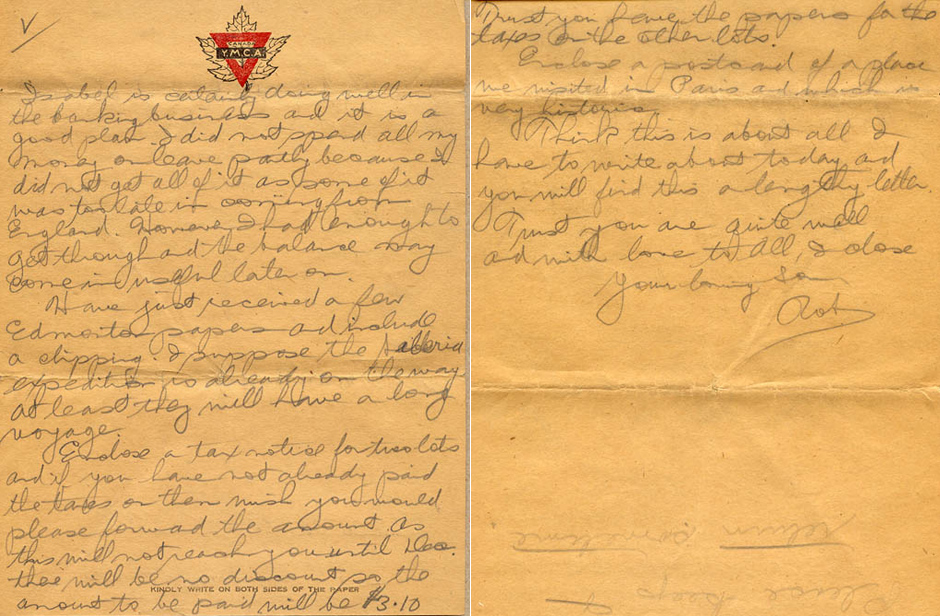 Y.M.C.A.
Isabel is certainly doing well in
the banking business and it is a
good place. I did not spend all my
money on leave partly because I
did not get all of it as some of it
was too late in coming from
England. However I had enough to
get through and the balance may
come in useful later on.
Have just received a few
Edmonton papers and include
a clipping. I suppose the
expedition is already on the way
at least they will have a long
voyage.
Enclose a tax notice for two lots
and if you have not already paid
the taxes on them wish you would
please forward the amount as
this will not reach you until Dec.
there will be no discount so the
KINDLY WRITE ON BOTH SIDES OF THE PAPER
amount to be paid will be $3.10
Trust you have the papers for the
taxes on the other lots.
Enclose a postcard of a place
we visited in Paris and which is
very historic.
Think this is about all I
have to write about today and
you will find this a lengthy letter.
Trust you are quite well
and with love to all, I close
Your loving Son
Rob